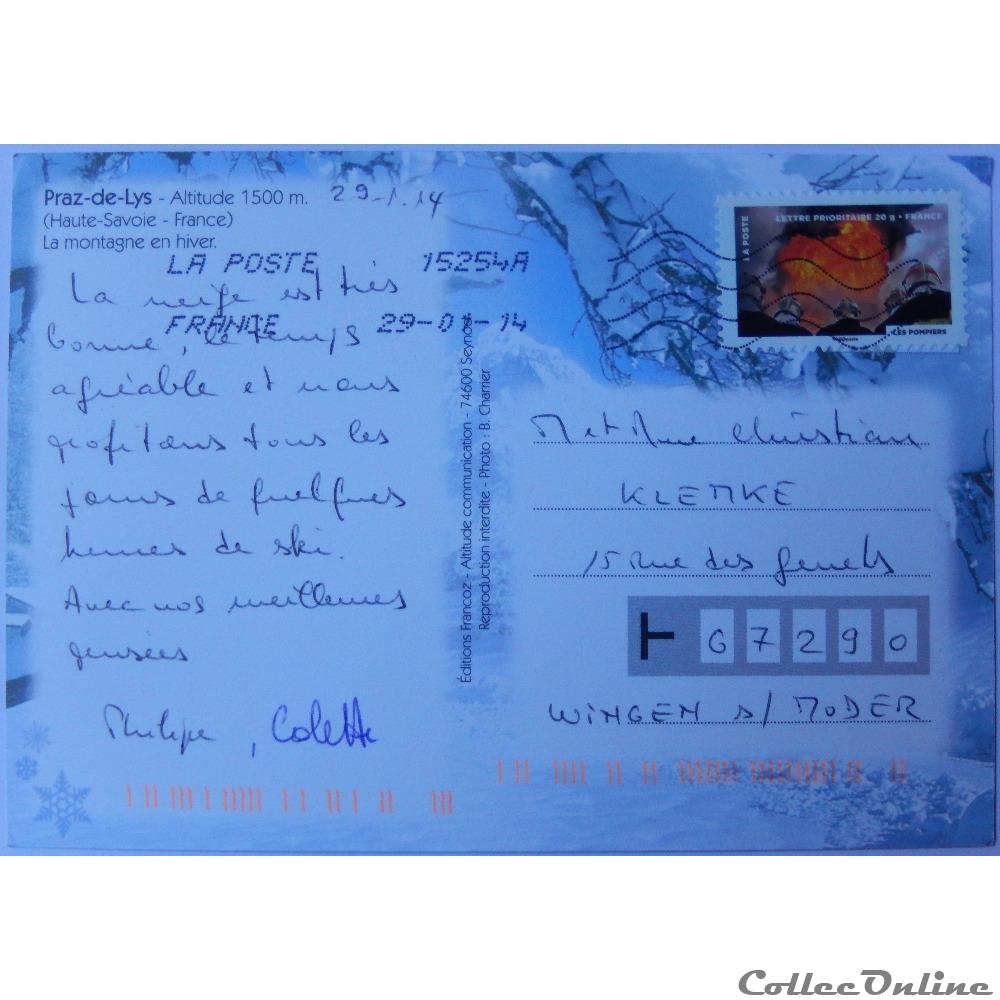 Praz-de-Lys - Altitude 1500 m. 29-1.14
(Haute-Savoie - France)
La montagne en hiver.
LA POSTE 15254A
FRANCE 29-01-14
La neige est très
bonne, le temps
agréable et nous
profitons tous les
jours de quelques
heures de ski.
Avec nos meilleures
pensées
Philippe, Colette
Éditions Francoz - Altitude communication - 74600 Seynod
Reproduction interdite - Photo : B. Charrier
LA POSTE
LETTRE PRIORITAIRE 20 g • FRANCE
LES POMPIERS
M et Mme Christian
KLEMKE
15 rue des genets
67290
WINGEN s/ MODER
CollecOnline